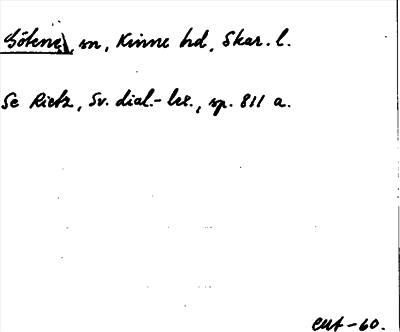 Götene, sn, Kinne hd, Skar. l.
Se Rietz, Sv. dial.-lex., sp. 811 a.
CUt-60.